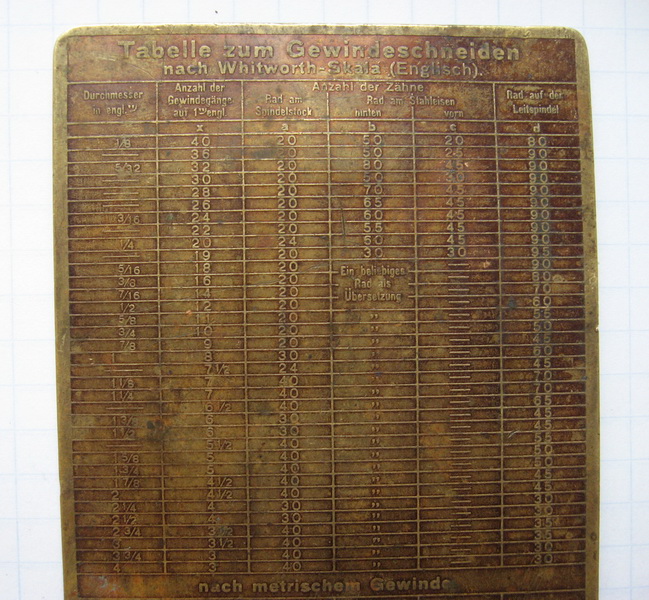 Tabelle zum Gewindeschneiden
nach Whitworth-Skala (Englisch).
Anzahl der Zähne
Durchmesser in engl."
Anzahl der Gewindegänge auf 1" engl.
Rad am Spindelstock
Rad am Stahleisen
hinten vorn
Rad auf der Leitspindel
x a b c d
1/8 40 20 50 20 80
36 20 50 25 90
5/32 32 20 80 45 90
30 20 50 30 90
28 20 70 45 90
26 20 65 45 90
3/16 24 20 60 45 90
22 20 55 45 90
1/4 20 24 60 45 90
19 20 30 30 95
5/16 18 20 Ein beliebiges 90
3/8 16 20 Rad als 80
7/16 14 20 Übersetzung 70
1/2 12 20 60
5/8 11 20 " 55
3/4 10 20 " 50
7/8 9 20 " 45
8 30 " 60
7 1/2 24 " 45
1 1/8 7 40 " 70
1 1/4 7 40 " 70
6 1/2 40 " 65
1 3/8 6 30 " 45
1 1/2 6 30 " 45
5 1/2 40 " 55
1 5/8 5 40 " 50
1 3/4 5 40 " 50
1 7/8 4 1/2 40 " 45
2 4 1/2 40 " 45
2 1/4 4 30 " 30
2 1/2 4 30 " 30
2 3/4 3 1/2 40 " 35
3 3 1/2 40 " 35
3 3/4 3 40 " 30
4 3 40 " 30
nach metrischem Gewinde